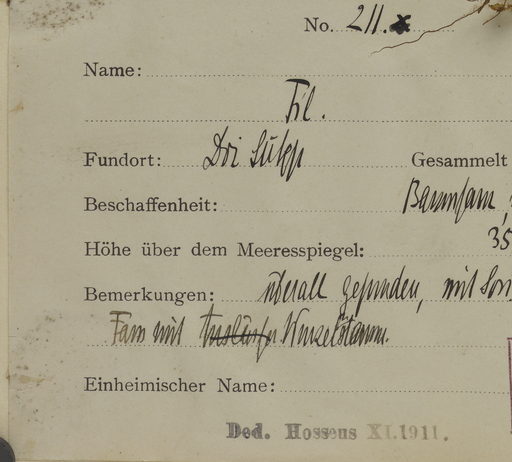 No. 211.
Name:
Fil.
Fundort: Doi Sutep Gesammelt
Beschaffenheit: Baumfarn,
Höhe über dem Meeresspiegel: 35
Bemerkungen: überall gefunden, mit
Farn mit Wurzelstamm.
Einheimischer Name:
Ded. Hosseus XI.1911.